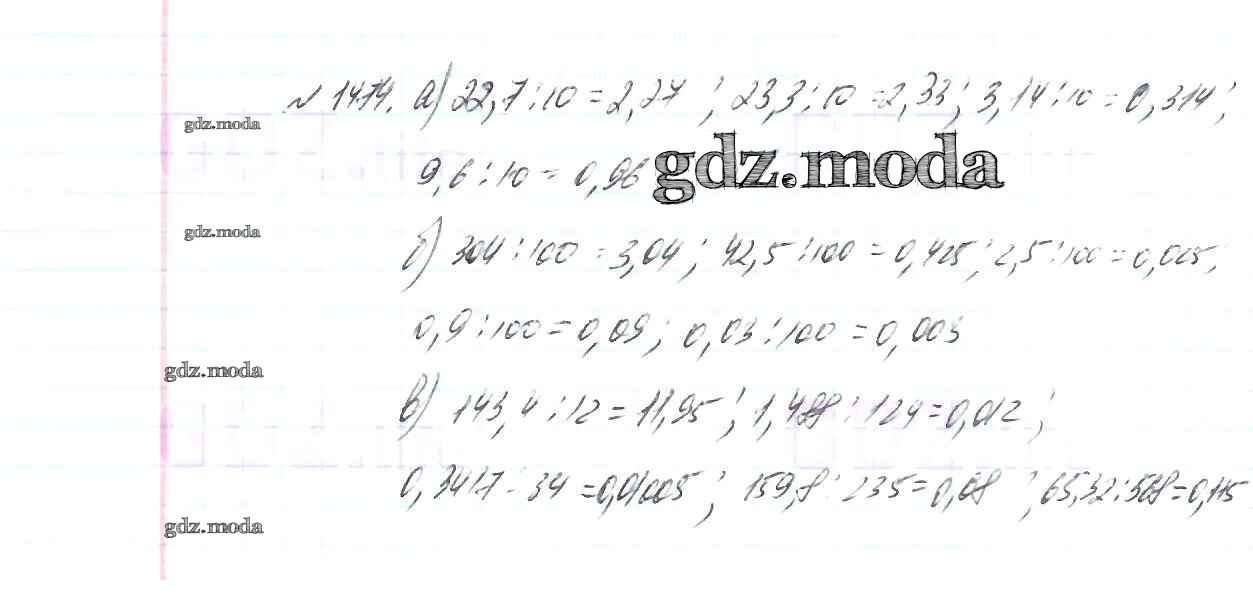 № 1474. а) 22,7 : 10 = 2,27 ; 23,3 : 10 = 2,33 ; 3,14 : 10 = 0,314 ;
gdz.moda
9,6 : 10 = 0,96
gdz.moda
gdz.moda
б) 304 : 100 = 3,04 ; 42,5 : 100 = 0,425 ; 2,5 : 100 = 0,025 ;
0,9 : 100 = 0,09 ; 0,03 : 100 = 0,003
gdz.moda
в) 143,4 : 12 = 11,95 ; 1,488 : 124 = 0,012 ;
0,3417 : 34 = 0,01005 ; 159,8 : 235 = 0,68 ; 65,32 : 568 = 0,115
gdz.moda